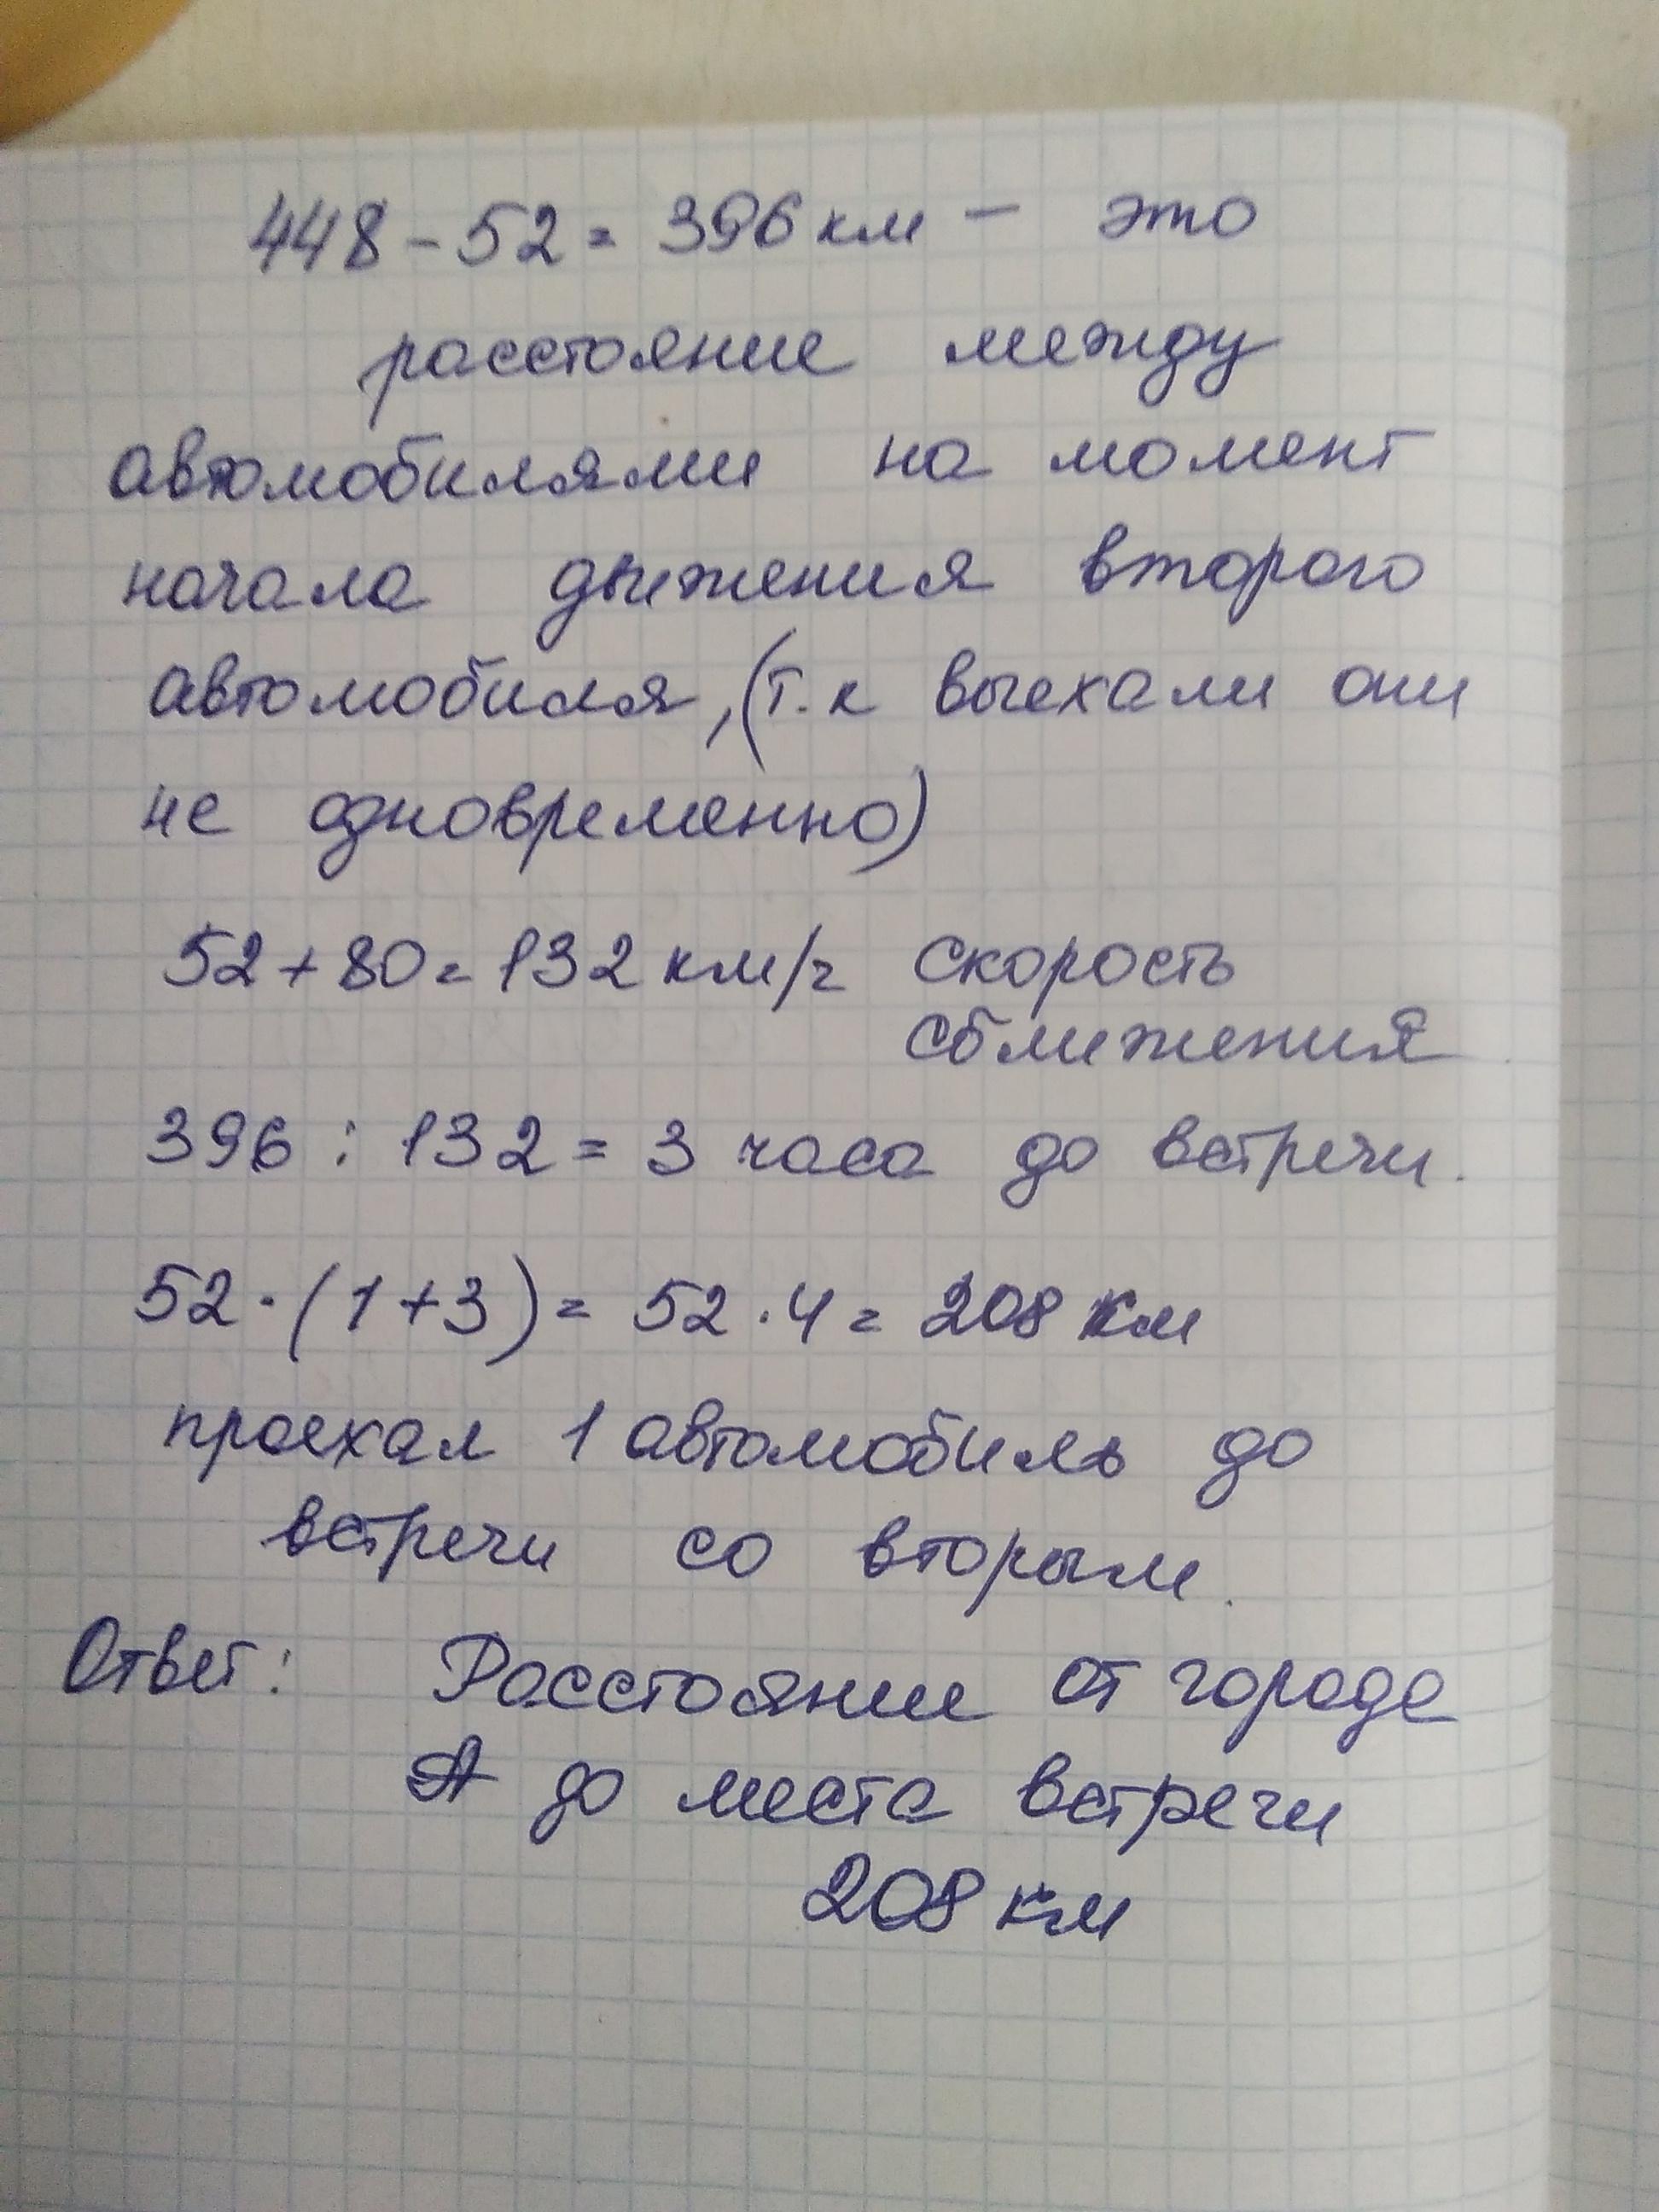 448 - 52 = 396 км - это
расстояние между
автомобилями на момент
начала движения второго
автомобиля, (т.к выехали они
не одновременно)
52 + 80 = 132 км/ч скорость
сближения
396 : 132 = 3 часа до встречи.
52 · (1 + 3) = 52 · 4 = 208 км
проехал 1 автомобиль до
встречи со вторым.
Ответ: Расстояние от города
А до места встречи
208 км